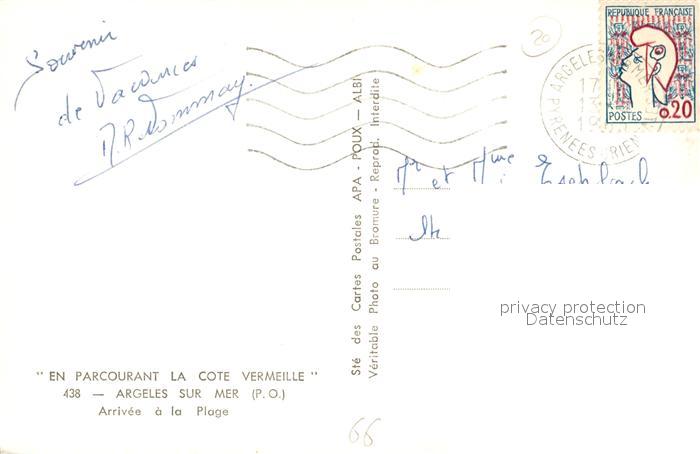 Souvenir
de Vacances
20
REPUBLIQUE FRANCAISE
POSTES 0.20
ARGELES
17
PYRENEES
Sté des Cartes Postales APA - POUX - ALBI
Véritable Photo au Bromure - Reprod. Interdite
Mr et Mme
privacy protection
Datenschutz
" EN PARCOURANT LA COTE VERMEILLE "
438 — ARGELES SUR MER (P.O.)
Arrivée à la Plage
66